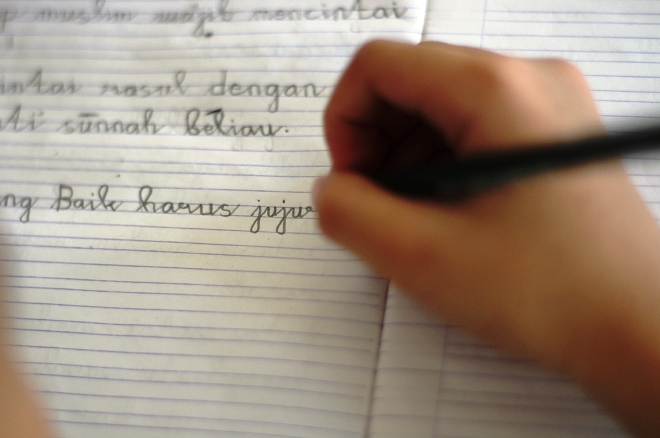 p muslim wajib mencintai
intai rasul dengan
ti sunnah beliau.
ng Baik harus jujur